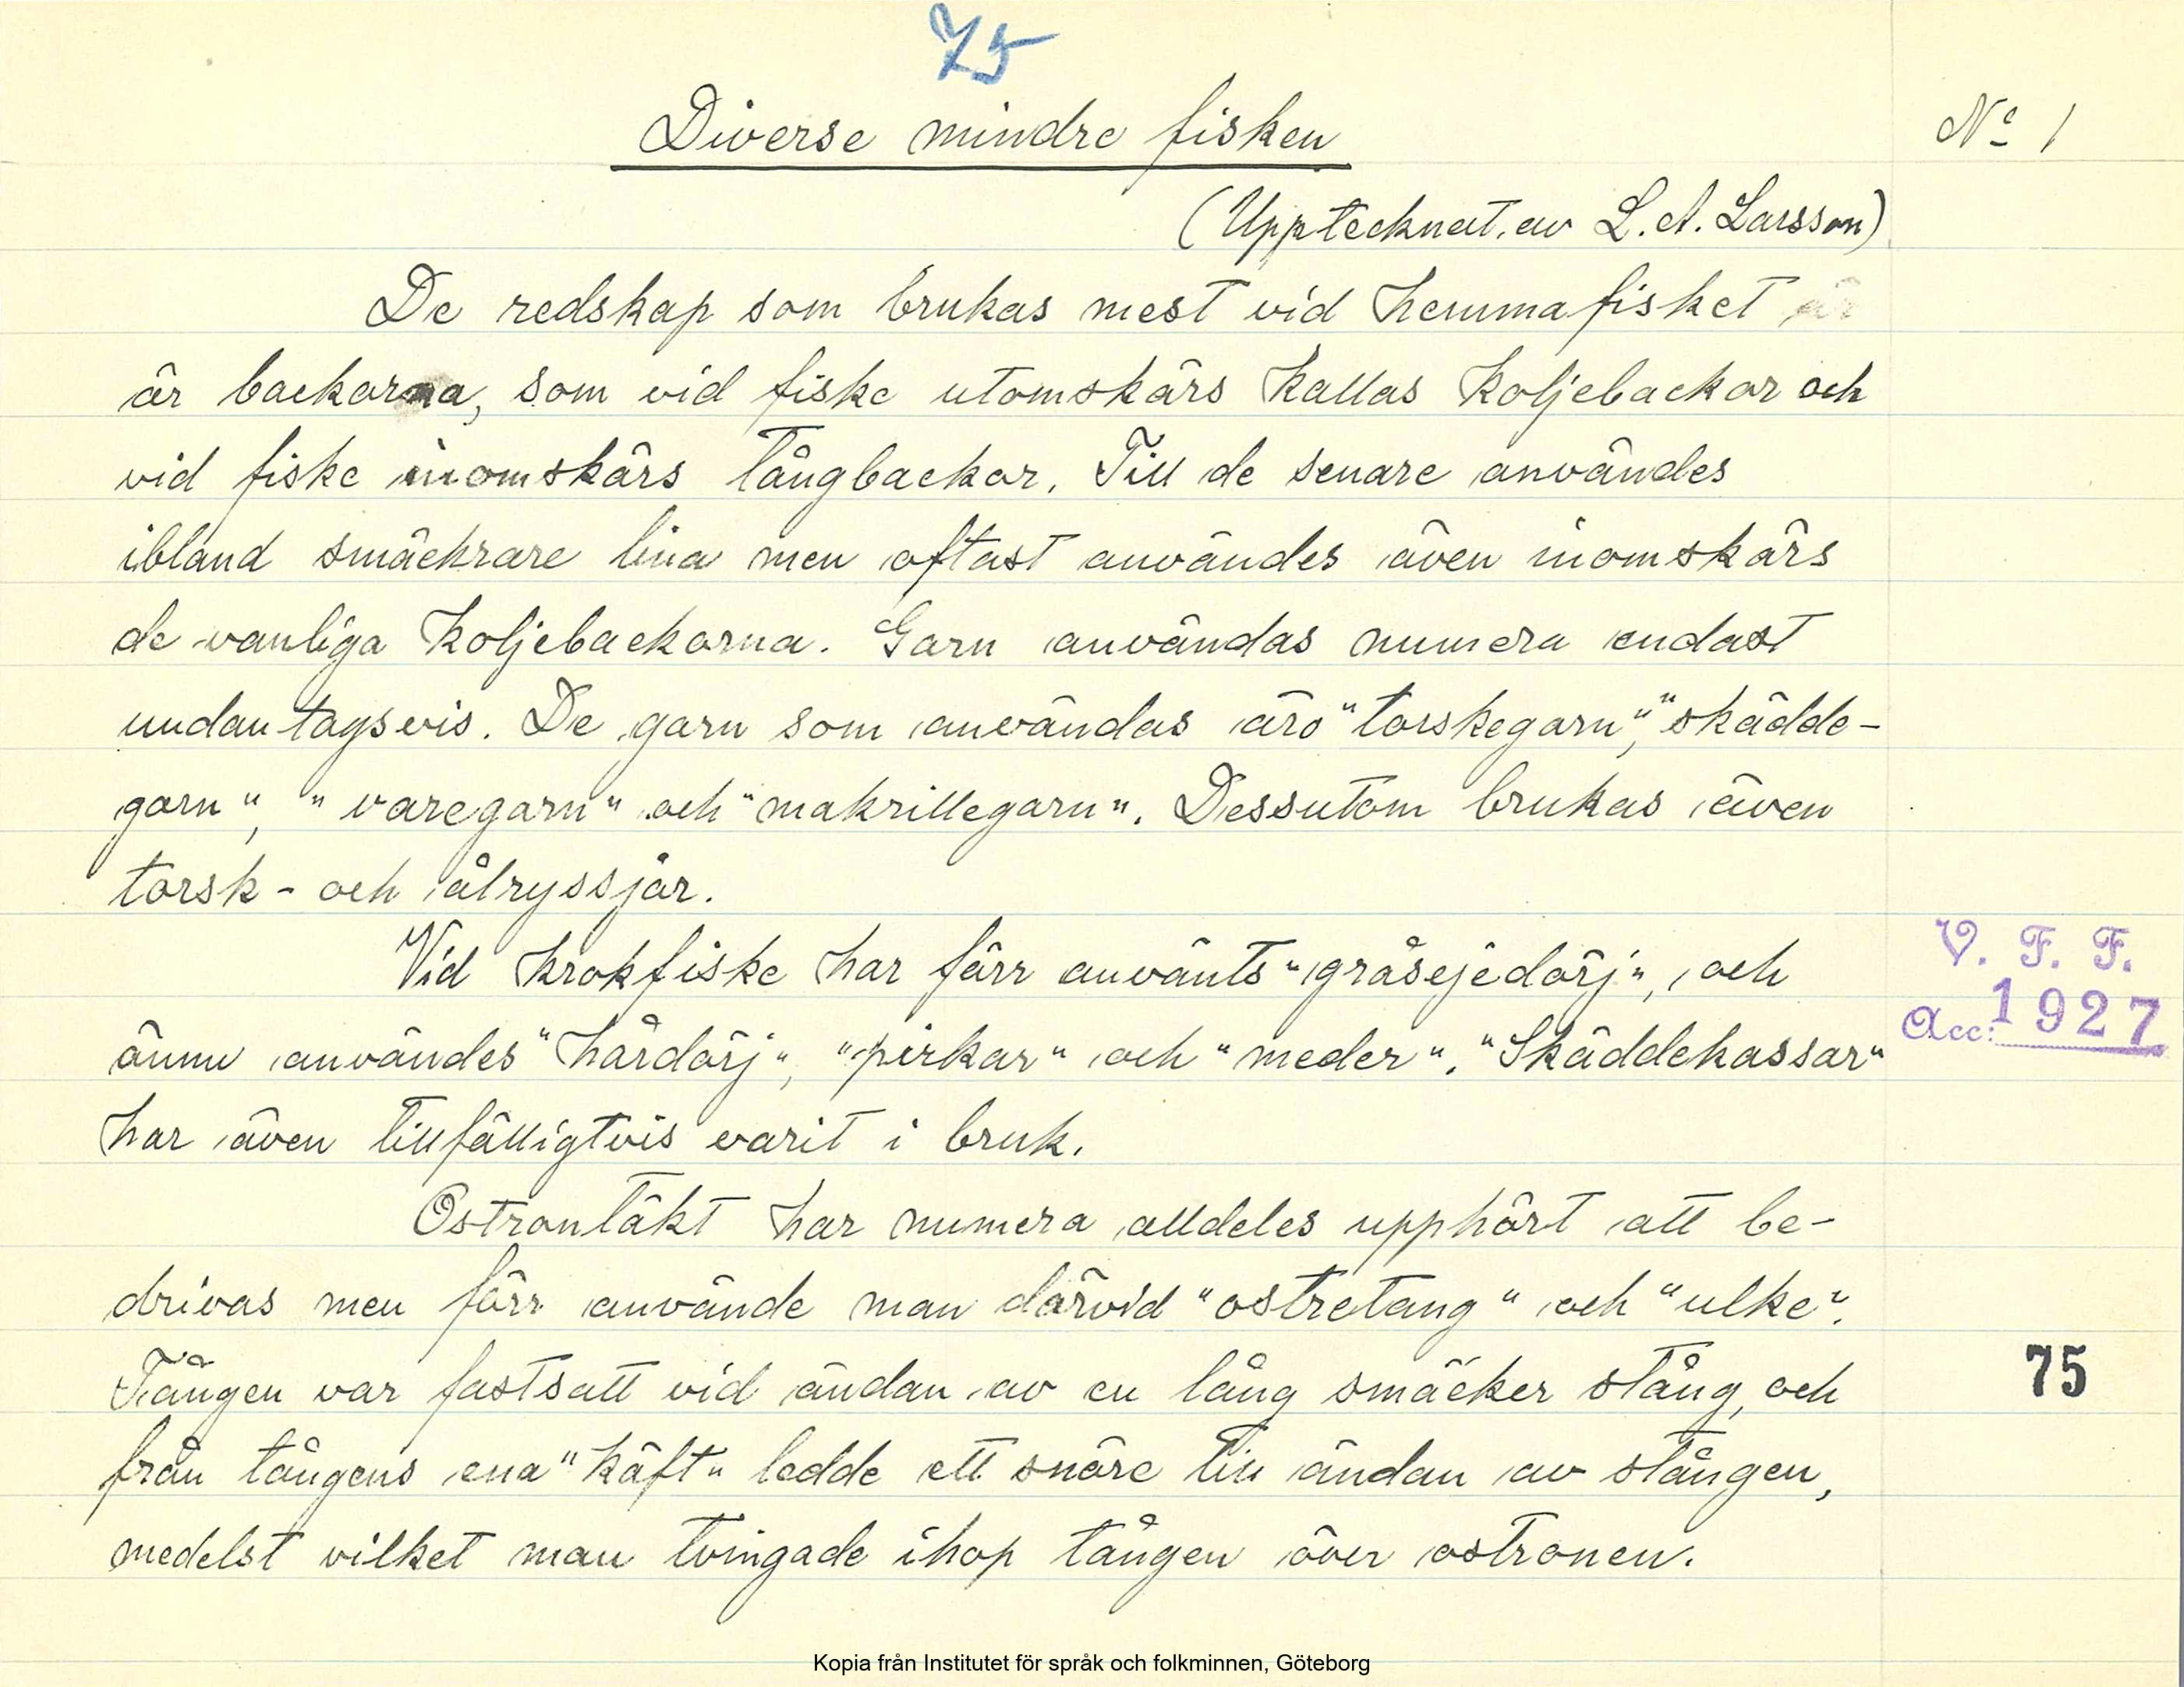 75
Diverse mindre fisken
No 1
(Upptecknat av L. A. Larsson)
De redskap som brukas mest vid hemmafisket är
är backorna, som vid fiske utomskärs kallas koljebackor och
vid fiske inomskärs tångbackor. Till de senare användes
ibland smäckrare lina men oftast användes även inomskärs
de vanliga koljebackorna. Garn användas numera endast
undantagsvis. De garn som användas äro "torskegarn", "skädde-
garn", "varegarn" och "makrillegarn". Dessutom brukas även
torsk- och ålryssjor.
Vid krokfiske har förr använts "gråsejedörj", och
ännu användes "hårdörj", "pirkar" och "meder". "Skäddekassar"
har även tillfälligtvis varit i bruk.
V. F. F.
Acc: 1927
Ostrontäkt har numera alldeles upphört att be-
drivas men förr använde man därvid "ostretang" och "ulke".
Tången var fastsatt vid ändan av en lång smäcker stång, och
75
från tångens ena "käft" ledde ett snöre till ändan av stången,
medelst vilket man tvingade ihop tången över ostronen.
Kopia från Institutet för språk och folkminnen, Göteborg